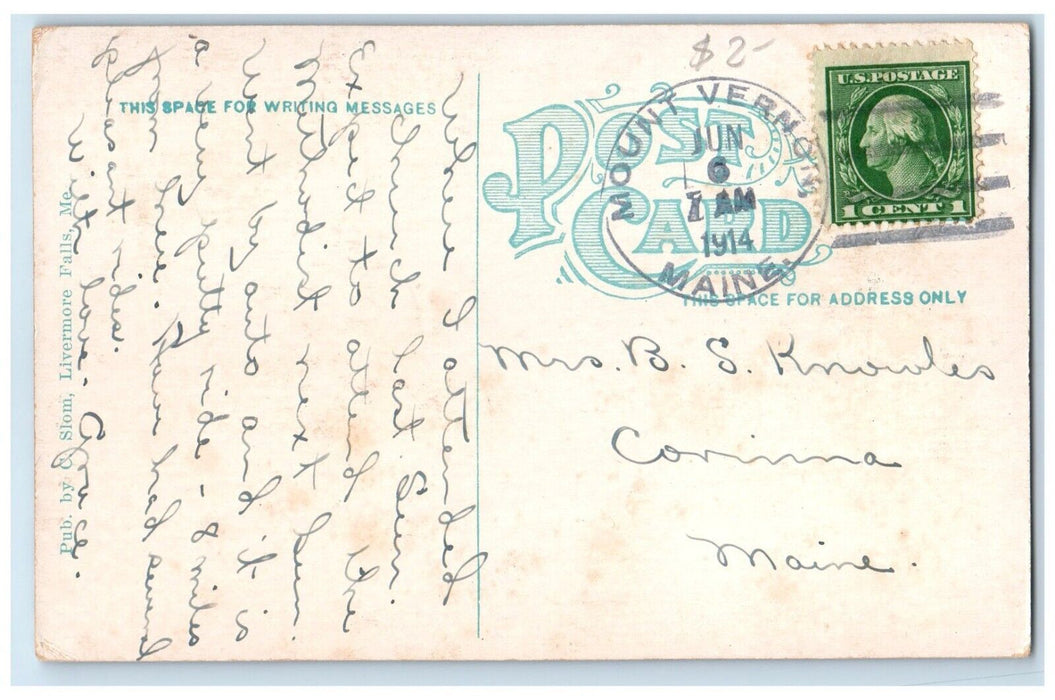 $2-
THIS SPACE FOR WRITING MESSAGES
POST CARD
THIS SPACE FOR ADDRESS ONLY
MOUNT VERNON,
JUN
6
AM
1914
MAINE.
U.S.POSTAGE
1 CENT 1
Mrs. B. S. Knowles
Corinna
Maine.
Where I attended
Church last Sun.
Expect to attend the
Methodist next Sun.
Went by auto and it is
a very pretty ride - 8 miles
from here. Have had several
pleasant rides.
With love,
Pub. by C. Slom, Livermore Falls, Me.